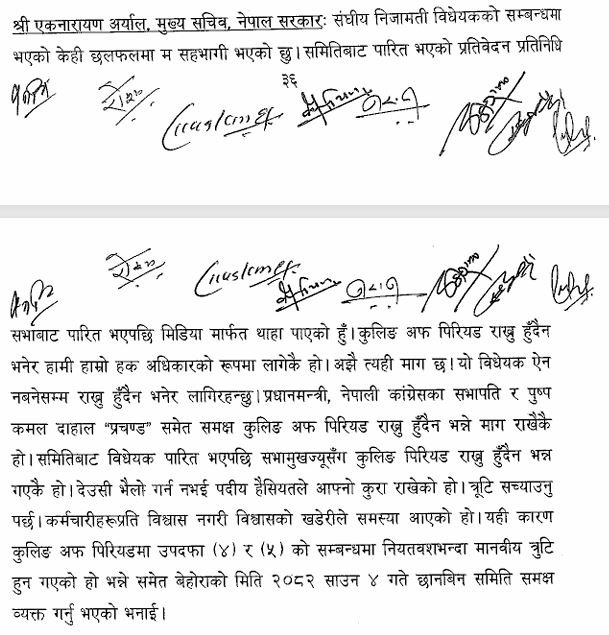 श्री एकनारायण अर्याल, मुख्य सचिव, नेपाल सरकारः संघीय निजामती विधेयकको सम्बन्धमा
भएको केही छलफलमा म सहभागी भएको छु।समितिबाट पारित भएको प्रतिवेदन प्रतिनिधि
३६
सभाबाट पारित भएपछि मिडिया मार्फत थाहा पाएको हुँ।कुलिङ अफ पिरियड राख्नु हुँदैन
भनेर हामी हाम्रो हक अधिकारको रूपमा लागेकै हो।अझै त्यही माग छ।यो विधेयक ऐन
नबनेसम्म राख्नु हुँदैन भनेर लागिरहन्छु।प्रधानमन्त्री, नेपाली कांग्रेसका सभापति र पुष्प
कमल दाहाल “प्रचण्ड” समेत समक्ष कुलिङ अफ पिरियड राख्नु हुँदैन भन्ने माग राखेकै
हो।समितिबाट विधेयक पारित भएपछि सभामुखज्यूसँग कुलिङ पिरियड राख्नु हुँदैन भन्न
गएकै हो।देउसी भैलो गर्न नभई पदीय हैसियतले आफ्नो कुरा राखेको हो।त्रूटि सच्याउनु
पर्छ।कर्मचारीहरूप्रति विश्वास नगरी विश्वासको खडेरीले समस्या आएको हो।यही कारण
कुलिङ अफ पिरियडमा उपदफा (४) र (५) को सम्बन्धमा नियतवशभन्दा मानवीय त्रुटि
हुन गएको हो भन्ने समेत बेहोराको मिति २०८२ साउन ४ गते छानबिन समिति समक्ष
व्यक्त गर्नु भएको भनाई।